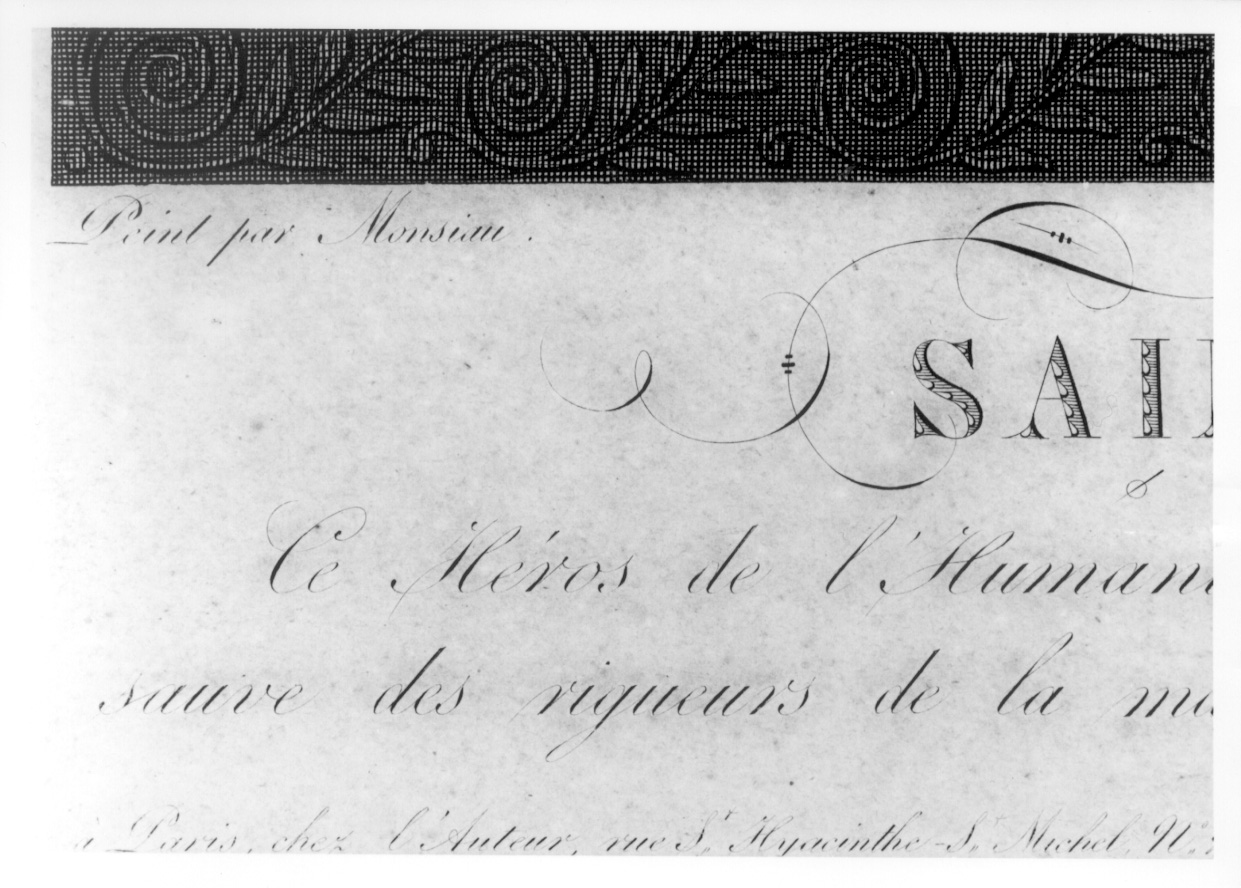 Peint par Monsiau.
SAI
Ce Héros de l'Humani
sauve des rigueurs de la
à Paris, chez l'Auteur, rue St. Hyacinthe-St. Michel, N.